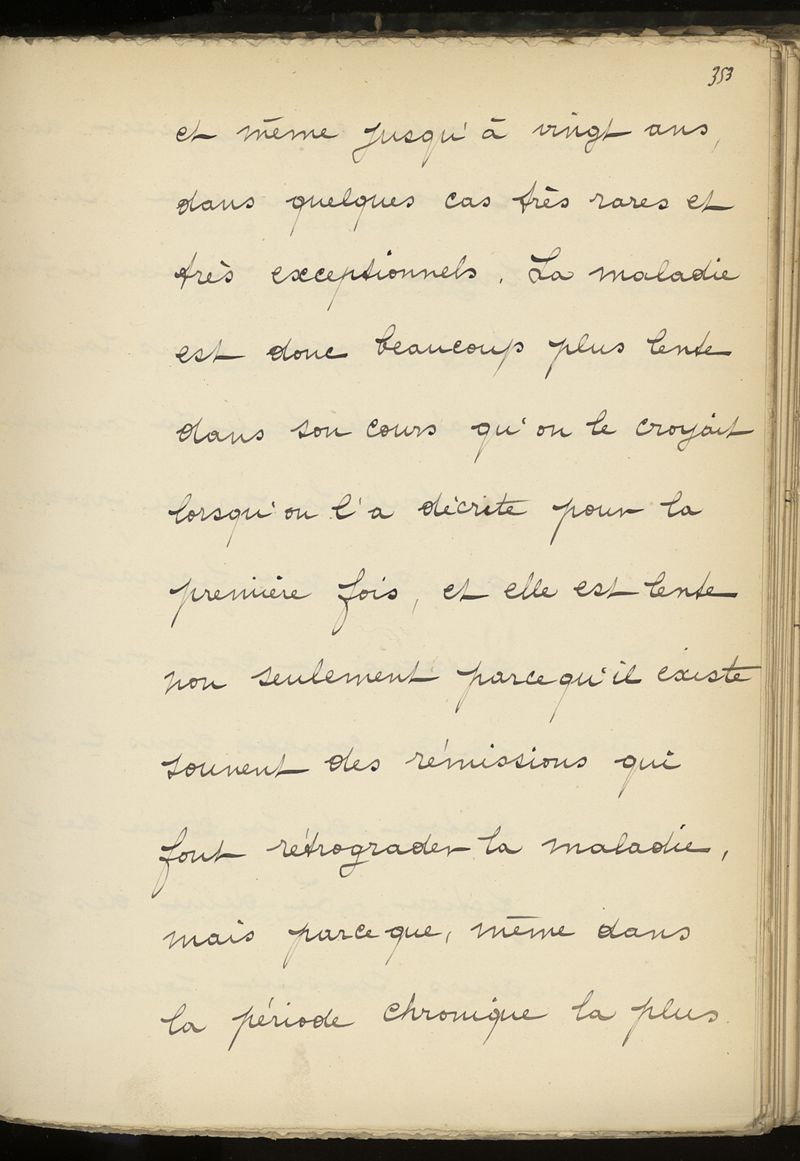 353
et même jusqu'à vingt ans,
dans quelques cas très rares et
très exceptionnels. La maladie
est donc beaucoup plus lente
dans son cours qu'on le croyait
lorsqu'on l'a décrite pour la
première fois, et elle est lente
non seulement parcequ'il existe
souvent des rémissions qui
font rétrograder la maladie,
mais parceque, même dans
la période chronique la plus